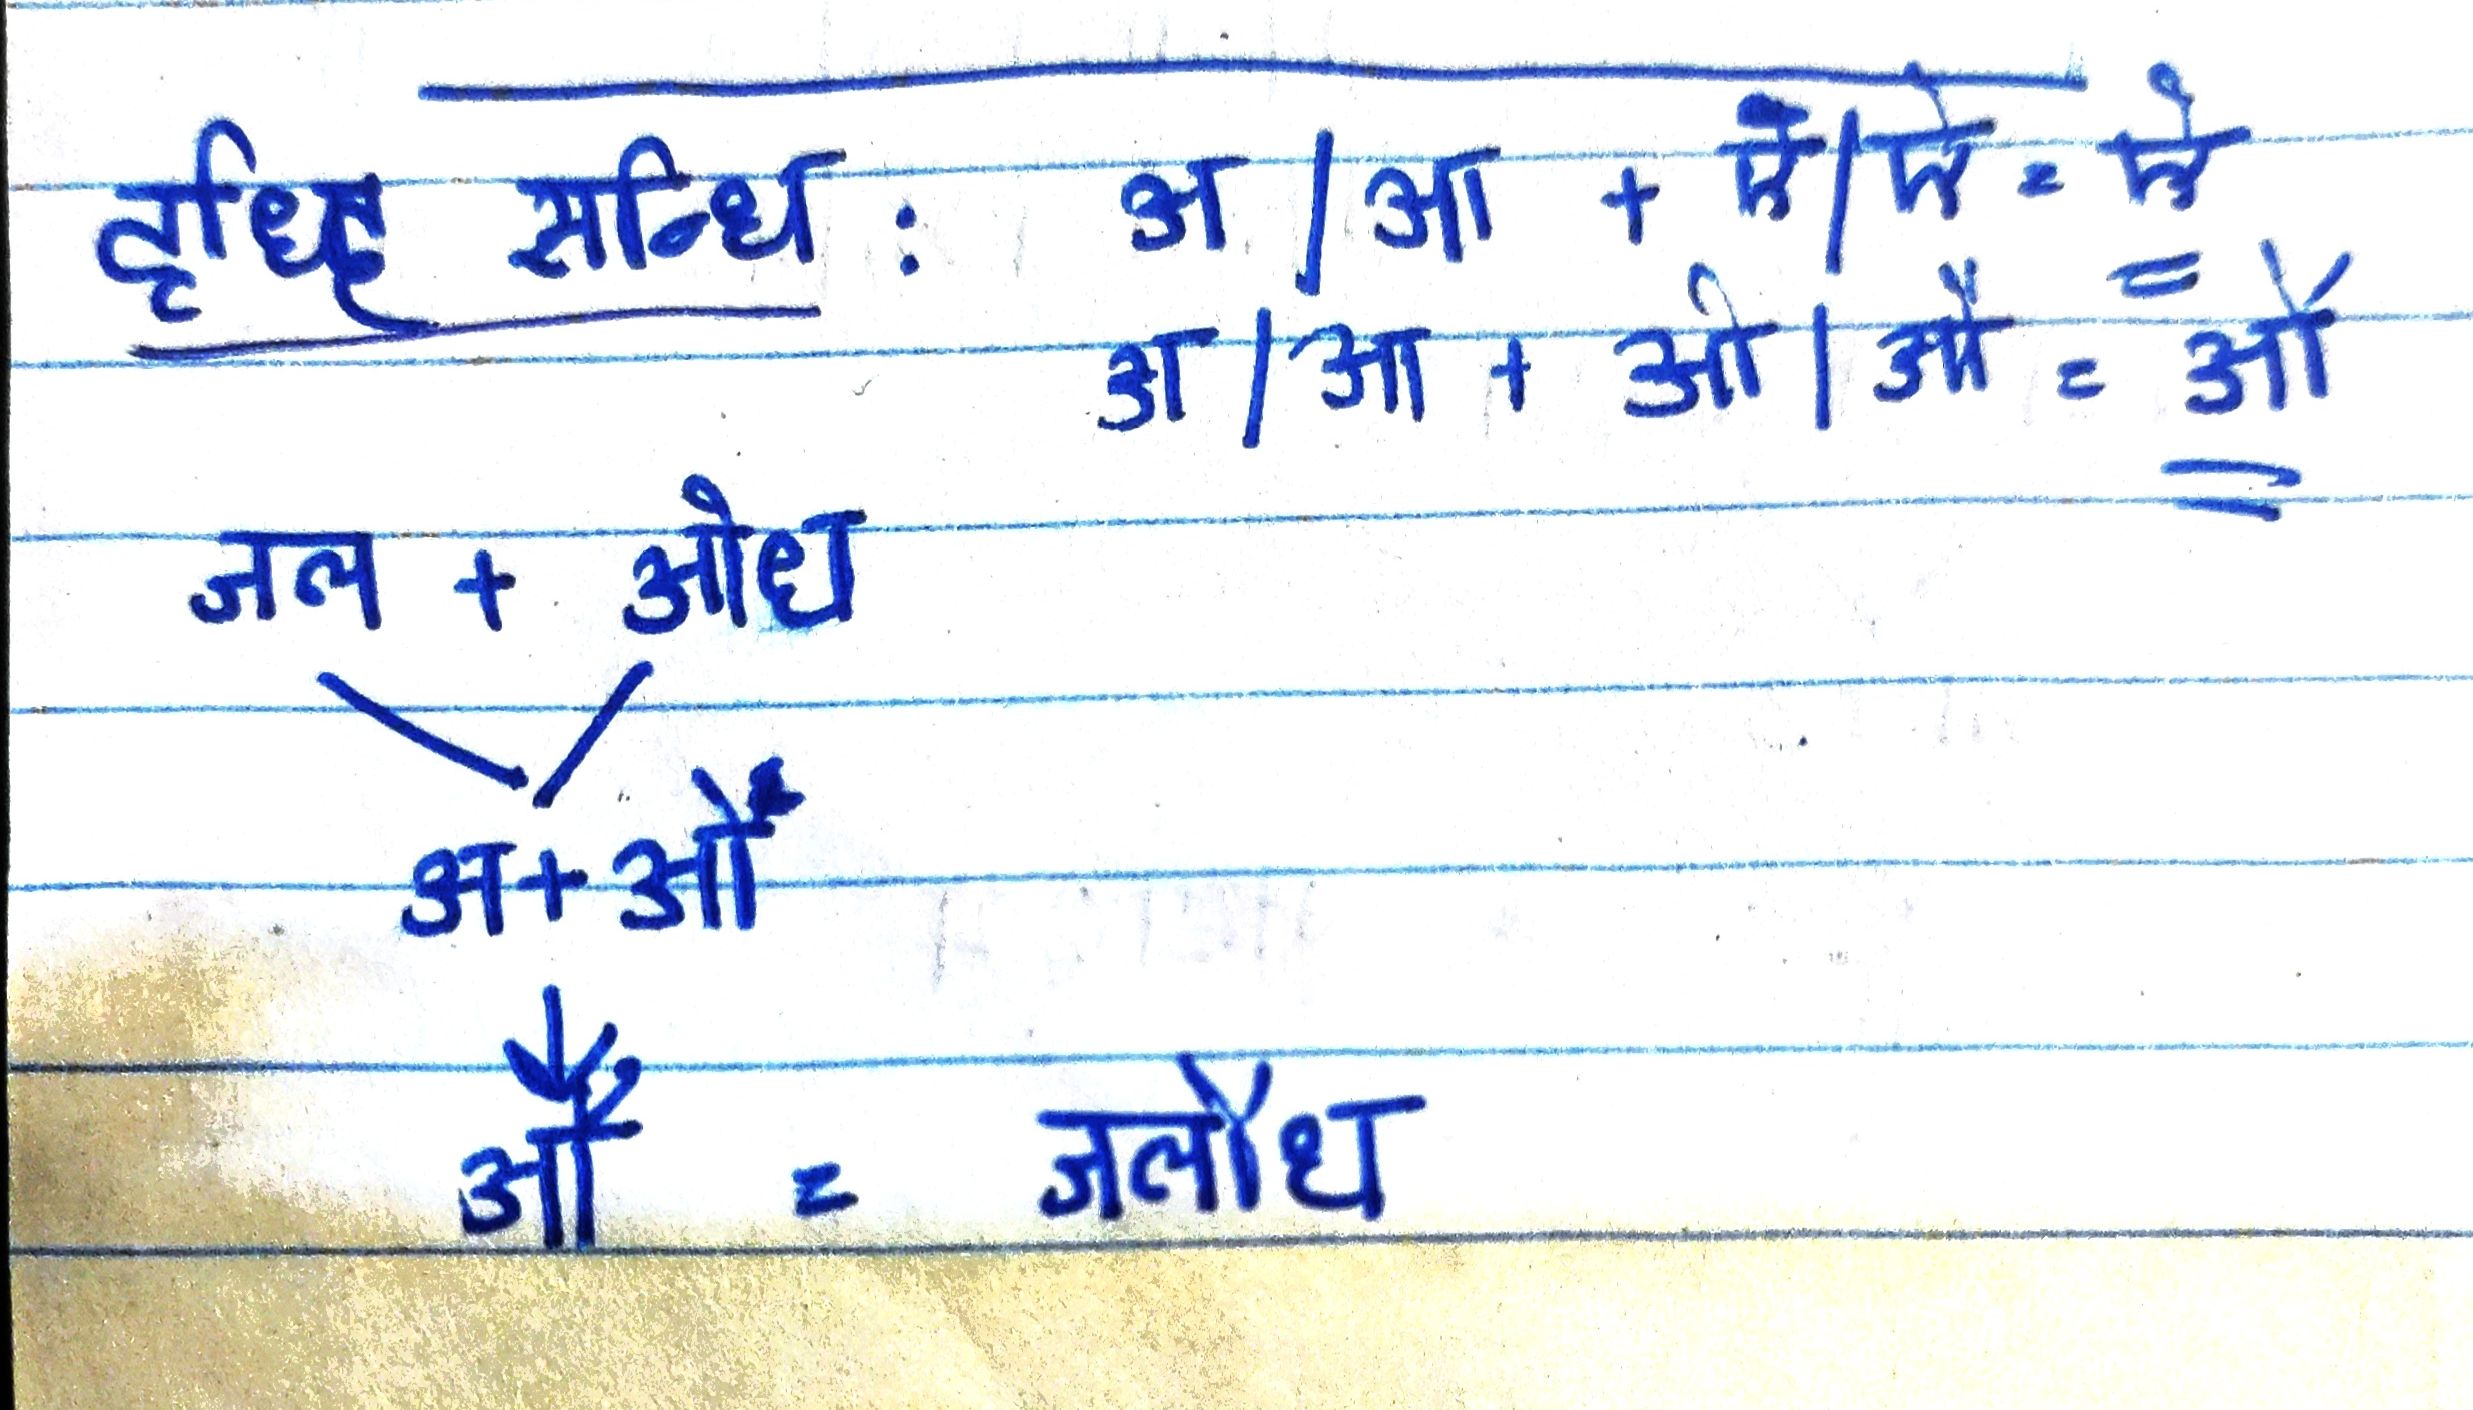 वृध्दि सन्धि : अ / आ + ए / ऐ = ऐ
अ / आ + ओ / औ = औ
जल + ओध
अ + औ
औ = जलौध